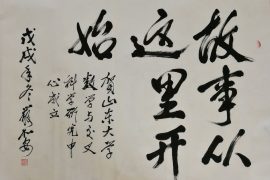 故事从
这里开
始
贺山东大学
数学与交叉
科学研究中
心成立
戊戌年冬